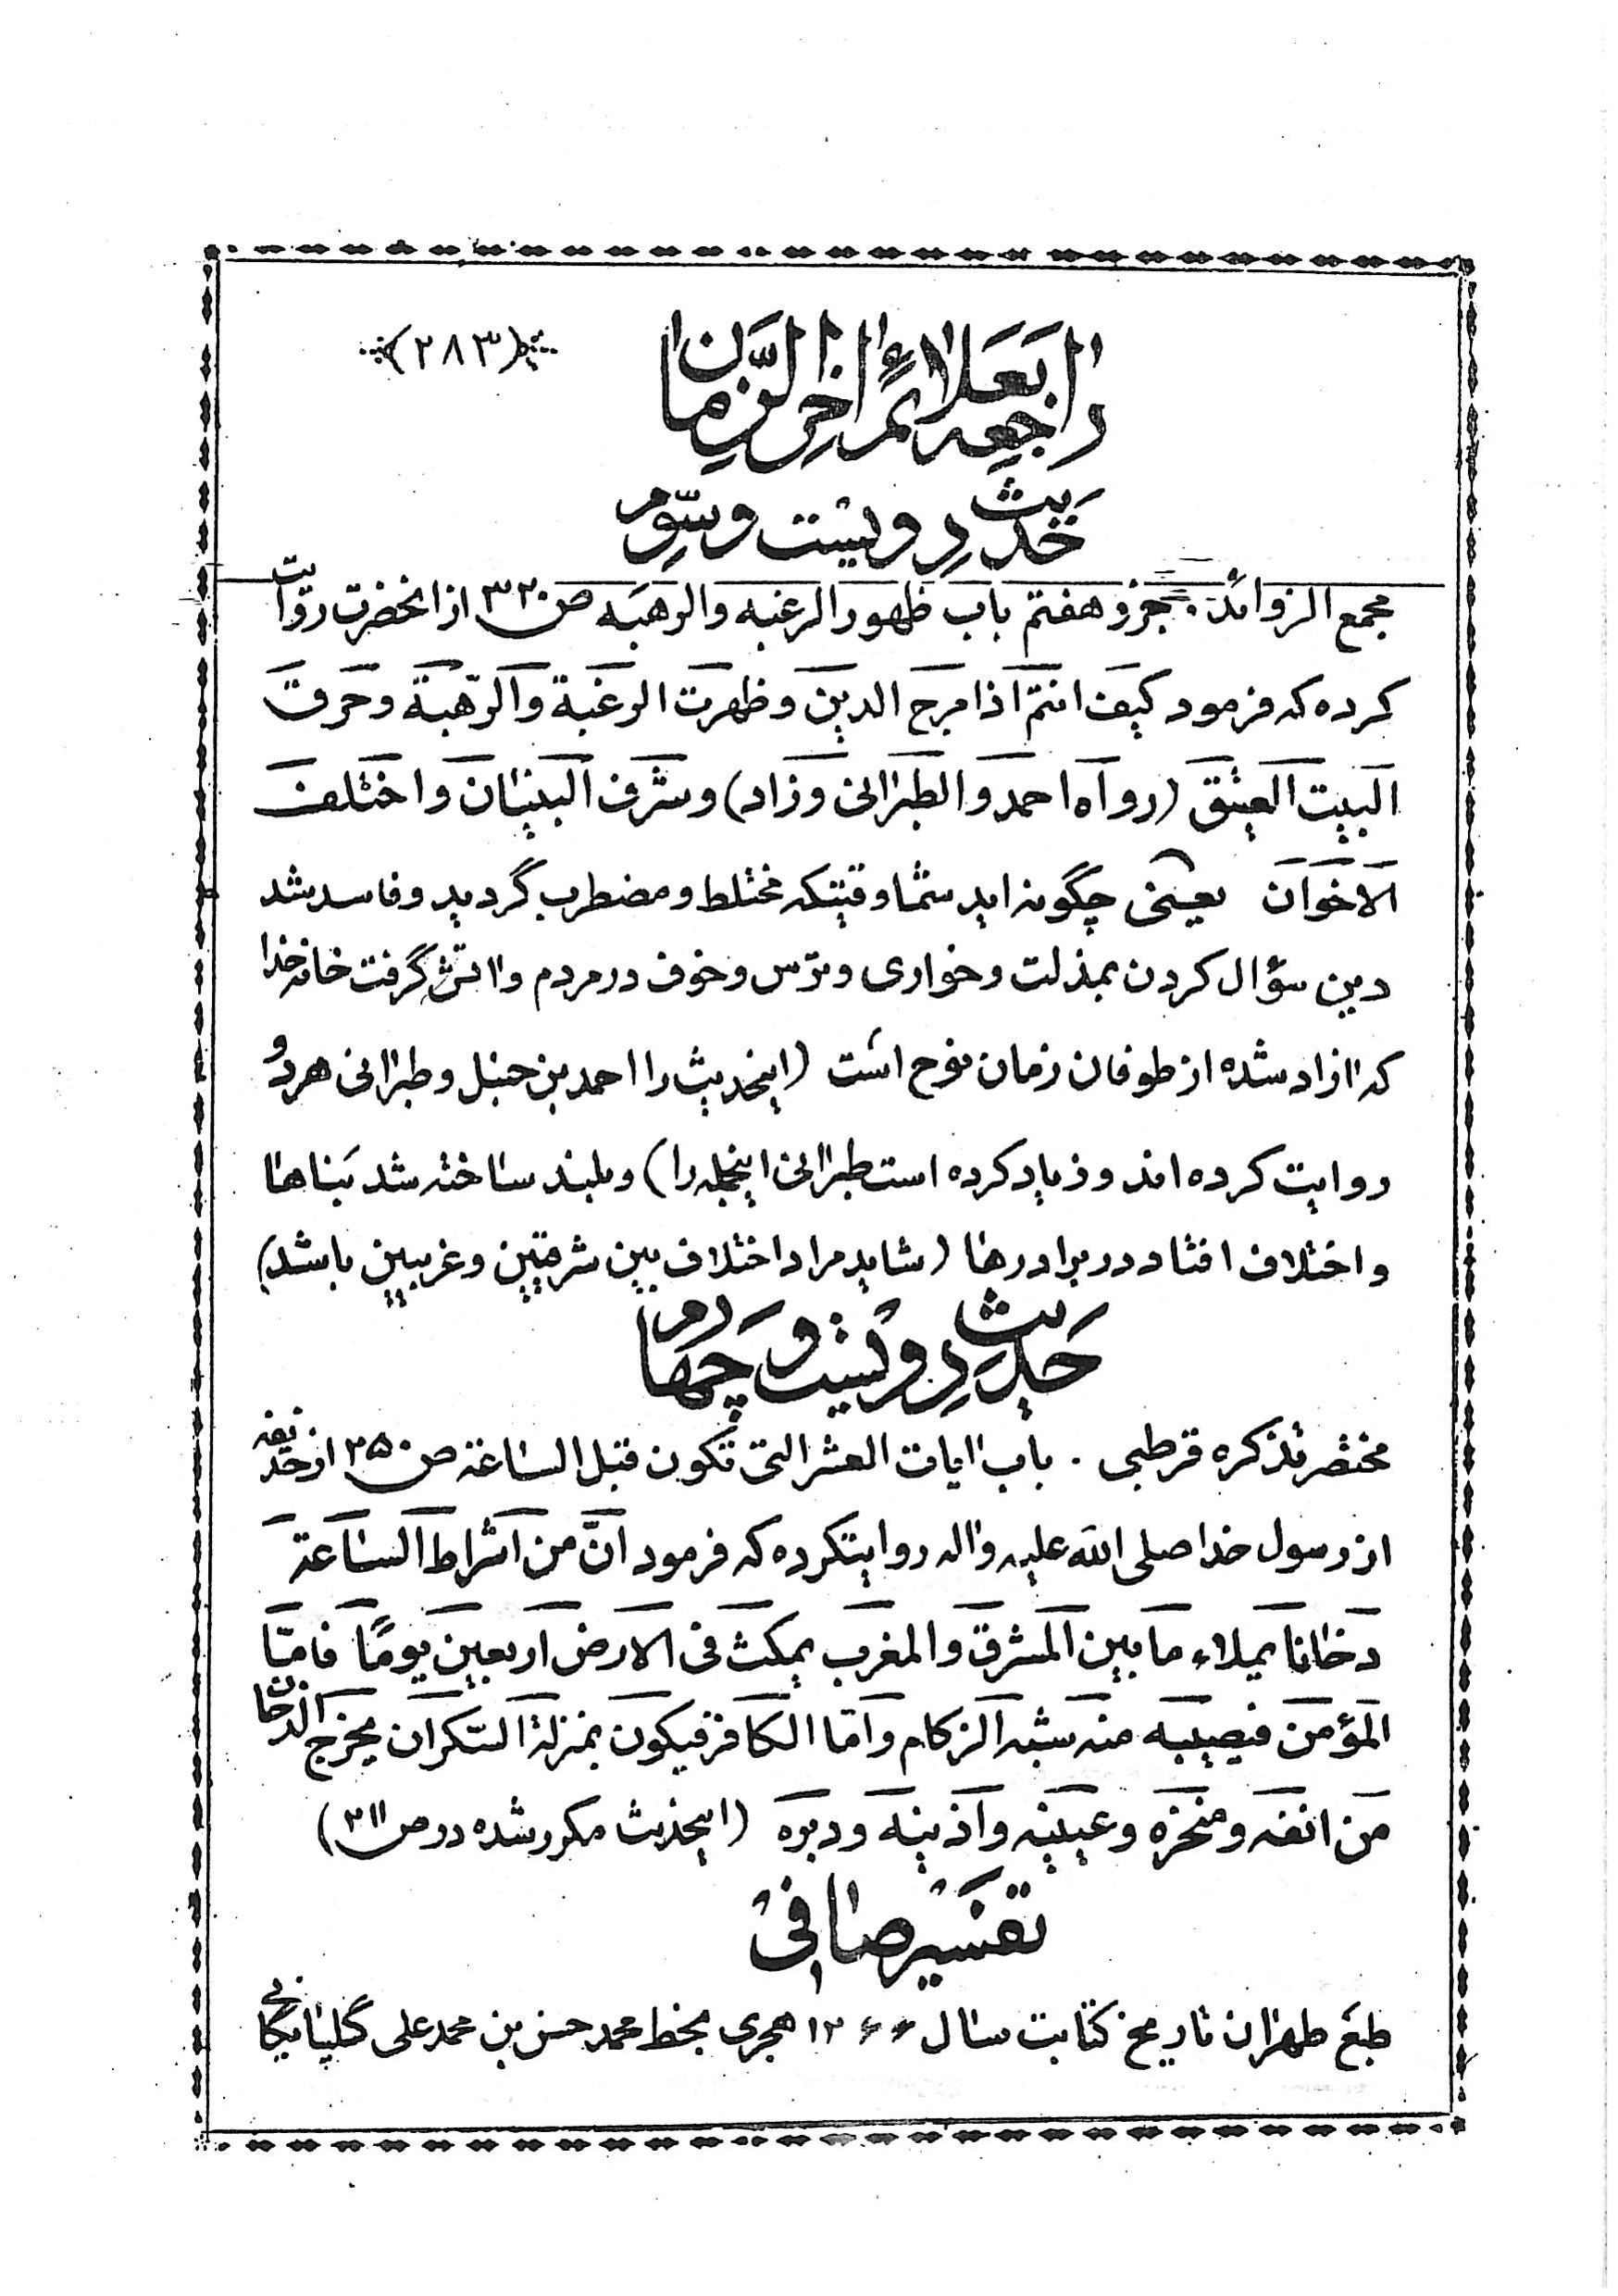 راجعه بعلائم اخر الزمان
(۲۸۳)
حدیث دویست و سوم
مجمع الزوائد . جزو هفتم باب ظهور الرغبه والرهبه ص۳۲۰ از انحضرت روایت
کرده که فرمود کیف انتم اذا مرج الدین و ظهرت الرغبة والرّهبة و حرقت
البیت العتیق (رواه احمد و الطبرانی وزاد) وشرف البنیان و اختلف
الاخوان یعنی چگونه اید شما وقتیکه مختلط و مضطرب گردید و فاسد شد
دین سؤال کردن بمذلت و خواری و ترس و خوف در مردم و اتش گرفت خانه خدا
که ازاد شده از طوفان زمان نوح است (اینحدیث را احمد بن حنبل و طبرانی هر دو
روایت کرده اند و زیاد کرده است طبرانی اینجمله را) و بلند ساخته شد بناها
و اختلاف افتاد در برادرها (شاید مراد اختلاف بین شرقیین و غربیین باشد)
حدیث دویست و چهارم
مختصر تذکره قرطبی . باب ایات العشر التی تکون قبل الساعة ص۲۵۰ از حذیفه
از رسول خدا صلی الله علیه واله روایتکرده که فرمود انّ من اشراط الساعة
دخانا یملاء ما بین المشرق والمغرب یمکث فی الارض اربعین یومًا فامّا
المؤمن فیصیبه منه شبه الزکام وامّا الکافر فیکون بمنزلة السّکران یخرج الدخان
من انفه و منخره و عینیه و اذنیه و دبره (اینحدیث مکرر شده در ص۳۱۱)
تفسیر صافی
طبع طهران تاریخ کتابت سال ۱۲۶۶ هجری بخط محمد حسن بن محمد علی گلپایگانی